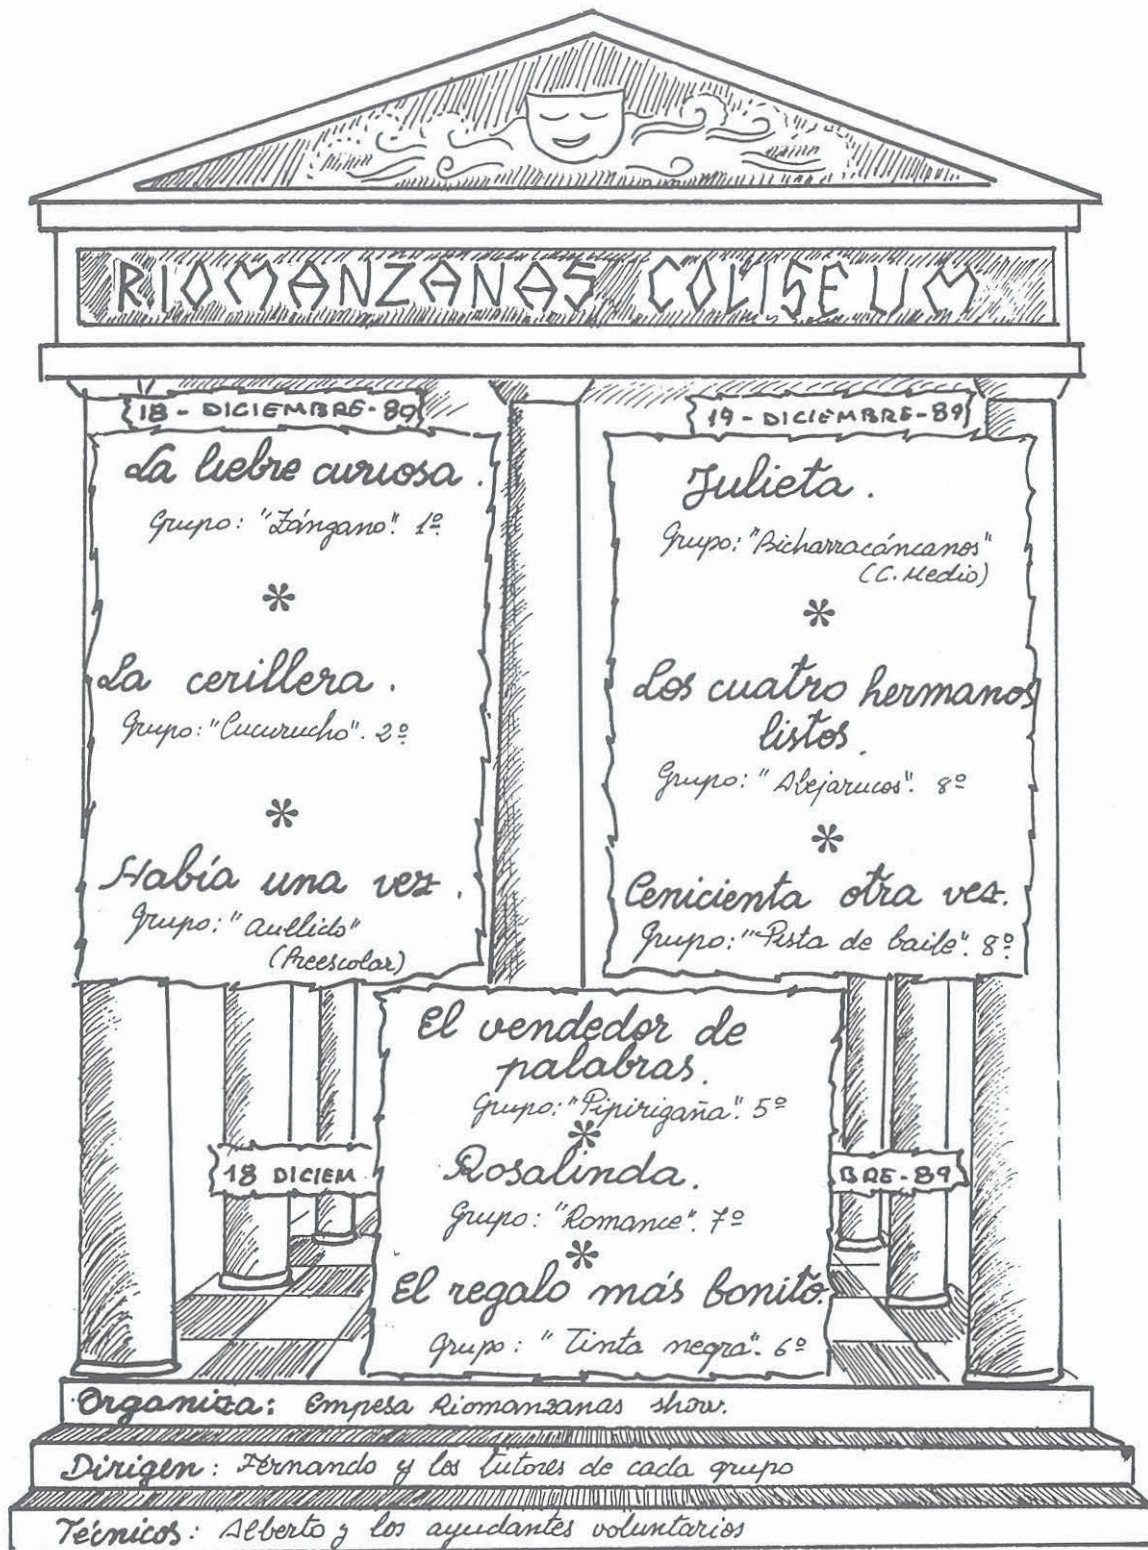 RIOMANZANAS COLISEUM
18 - DICIEMBRE - 89
La liebre curiosa.
Grupo: "Zángano". 1º
*
La cerillera.
Grupo: "Cucurucho". 2º
*
Había una vez.
Grupo: "Aullido"
(Preescolar)
19 - DICIEMBRE - 89
Julieta.
Grupo: "Bicharracáncanos"
(C. Medio)
*
Los cuatro hermanos
listos.
Grupo: "Abejarucos". 8º
*
Cenicienta otra vez.
Grupo: "Pista de baile". 8º
18 DICIEM BRE - 89
El vendedor de
palabras.
Grupo: "Pipirigaña". 5º
*
Rosalinda.
Grupo: "Romance". 7º
*
El regalo más bonito.
Grupo: "Tinta negra". 6º
Organiza: Empesa Riomanzanas show.
Dirigen: Fernando y los tutores de cada grupo
Técnicos: Alberto y los ayudantes voluntarios